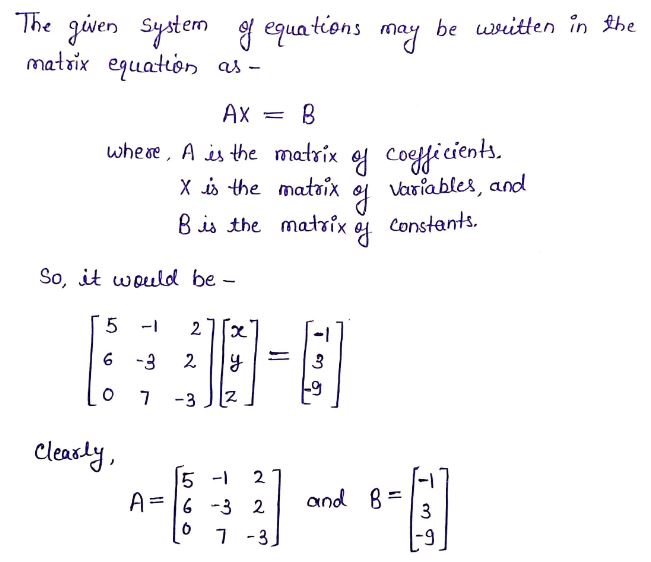 The given system of equations may be written in the
matrix equation as -
AX = B
where, A is the matrix of coefficients.
X is the matrix of variables, and
B is the matrix of constants.
So, it would be -
[5 -1 2] [x] = [-1]
[6 -3 2] [y] [3]
[0 7 -3] [z] [-9]
Clearly,
A = [5 -1 2] and B = [-1]
[6 -3 2] [3]
[0 7 -3] [-9]